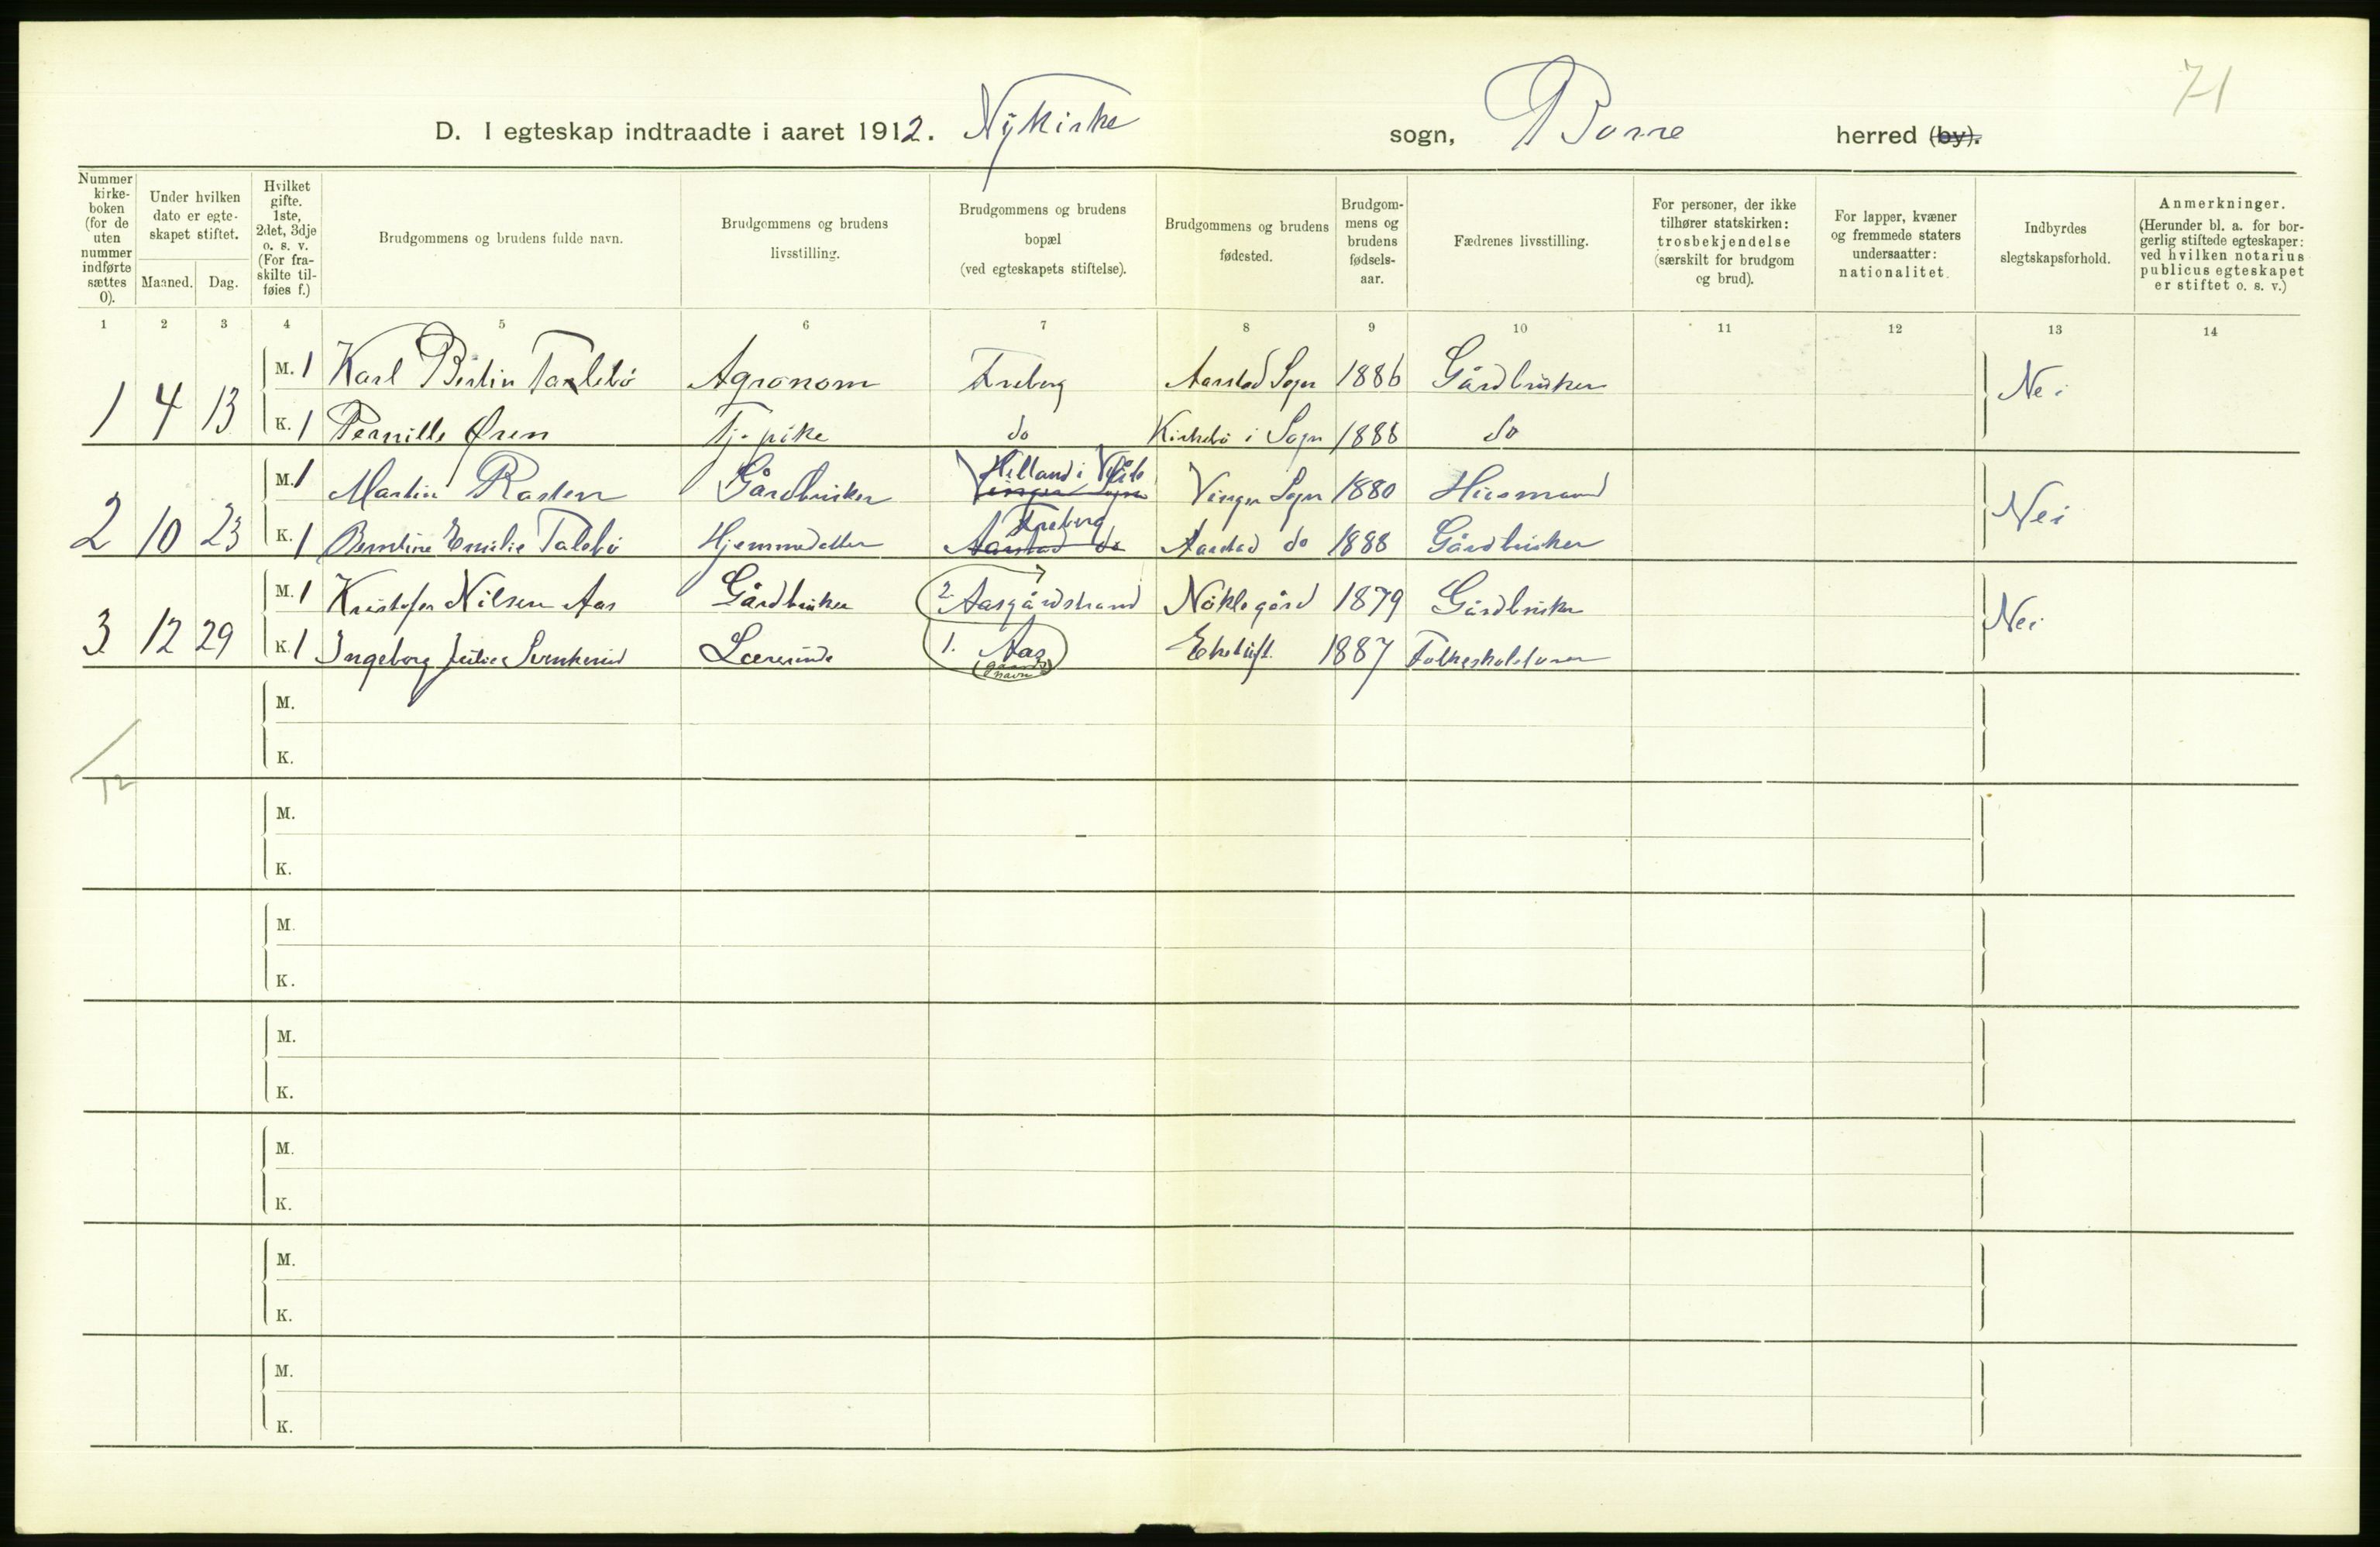 71
D. I egteskap indtraadte i aaret 1912. Nykirke sogn, Borre herred (by).
Nummer kirke-boken (for de uten nummer indførte sættes 0).
Under hvilken dato er egte-skapet stiftet.
Maaned. Dag.
Hvilket gifte. 1ste, 2det, 3dje o. s. v. (For fra-skilte til-føies f.)
Brudgommens og brudens fulde navn.
Brudgommens og brudens livsstilling.
Brudgommens og brudens bopæl (ved egteskapets stiftelse).
Brudgommens og brudens fødested.
Brudgom-mens og brudens fødsels-aar.
Fædrenes livsstilling.
For personer, der ikke tilhører statskirken: trosbekjendelse (særskilt for brudgom og brud).
For lapper, kvæner og fremmede staters undersaatter: nationalitet.
Indbyrdes slegtskapsforhold.
Anmerkninger. (Herunder bl. a. for bor-gerlig stiftede egteskaper: ved hvilken notarius publicus egteskapet er stiftet o. s. v.)
1 2 3 4 5 6 7 8 9 10 11 12 13 14
M. 1 Karl Bertin Talebö Agronom Freberg Aarstad Sogn 1886 Gårdbruker
1 4 13 Nei
K. 1 Pernille Øren Tj. pike do Kirkebö i Sogn 1888 do
M. 1 Martin Rasten Gårdbruker Hilland i Våle Vinger Sogn Vinger Sogn 1880 Husmand
2 10 23 Nei
K. 1 Berntine Emilie Talebö Hjemmedatter Freberg Aarstad do Aarstad do 1888 Gårdbruker
M. 1 Kristofer Nilsen Aas Gårdbruker 2. Aasgårdstrand Nöklegård 1879 Gårdbruker
3 12 29 Nei
K. 1 Ingeborg Julie Lærerinde 1. Aas (Gaards navn) 1887 Folkeskolelærer
M.
K.
12
M.
K.
M.
K.
M.
K.
M.
K.
M.
K.
M.
K.